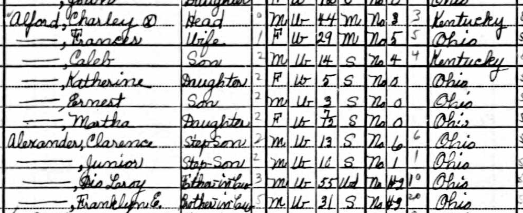 Daughter Ohio
Alford, Charley Head 0 M W 44 M No 8 3 Kentucky
——, Frances Wife 1 F W 29 M No 5 5 Ohio
——, Caleb Son 2 M W 14 S No 4 4 Kentucky
——, Katherine Daughter 2 F W 5 S No 0 Ohio
——, Ernest Son 2 M W 3 S No 0 Ohio
——, Martha Daughter 2 F W S No 0 Ohio
Alexander, Clarence Step Son 2 M W 13 S No 6 6 Ohio
——, Junior Step Son 2 M W 10 S No 1 1 Ohio
——, Leroy 3 M W 55 Wd No Ohio
——, Franklyn E. Brother in law 5 M W 31 S No Ohio